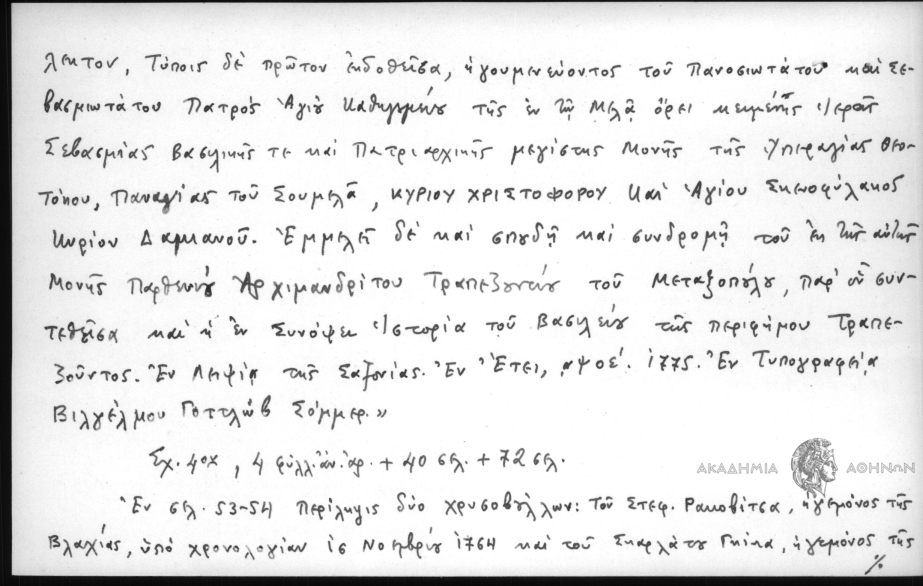 λεκτον, Τύποις δὲ πρῶτον ἐκδοθεῖσα, ἡγουμενεύοντος τοῦ Πανοσιωτάτου καὶ Σε-
βασμιωτάτου Πατρὸς Ἁγίου Καθηγουμένου τῆς ἐν τῷ Μελᾷ ὄρει κειμένης Ἱερᾶς
Σεβασμίας Βασιλικῆς τε καὶ Πατριαρχικῆς μεγίστης Μονῆς τῆς Ὑπεραγίας Θεο-
τόκου, Παναγίας τοῦ Σουμελᾶ, ΚΥΡΙΟΥ ΧΡΙΣΤΟΦΟΡΟΥ καὶ Ἁγίου Σκευοφύλακος
Κυρίου Δαμιανοῦ. Ἐμμελεῖ δὲ καὶ σπουδῇ καὶ συνδρομῇ τοῦ ἐκ τῆς αὐτῆς
Μονῆς Παρθενίου Ἀρχιμανδρίτου Τραπεζουντίου τοῦ Μεταξοπούλου, παρ' οὗ συν-
τεθεῖσα καὶ ἡ ἐν Συνόψει Ἱστορία τοῦ Βασιλείου τῆς περιφήμου Τραπε-
ζοῦντος. Ἐν Λειψίᾳ τῆς Σαξονίας. Ἐν Ἔτει, αψοέ. 1775. Ἐν Τυπογραφείᾳ
Βιλγέλμου Γοττλὼβ Σόμμερ.»
Σχ. 4ον, 4 φύλλ. ἀν. ἀρ. + 40 σελ. + 72 σελ.
Ἐν σελ. 53-54 περίληψις δύο χρυσοβούλλων: Τοῦ Στεφ. Ρακοβίτσα, ἡγεμόνος τῆς
Βλαχίας, ὑπὸ χρονολογίαν 15 Νοεμβρίου 1764 καὶ τοῦ Σκαρλάτου Γκίκα, ἡγεμόνος τῆς
./.
ΑΚΑΔΗΜΙΑ ΑΘΗΝΩΝ